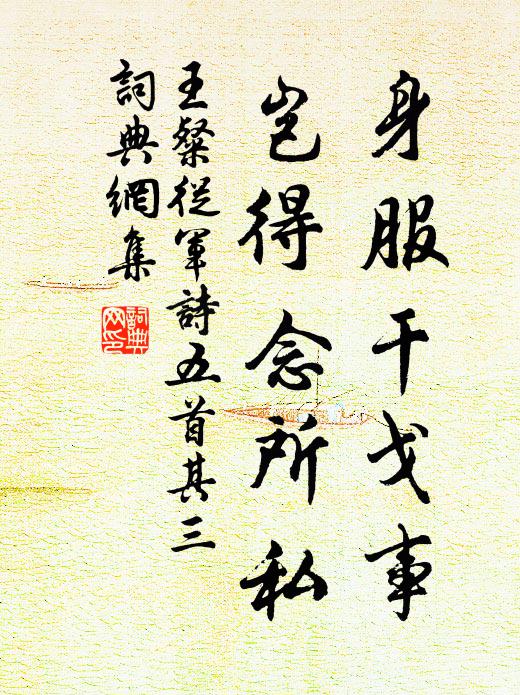 身服干戈事
豈得念所私
王粲從軍詩五首其三
詞典網集
詞典
网印